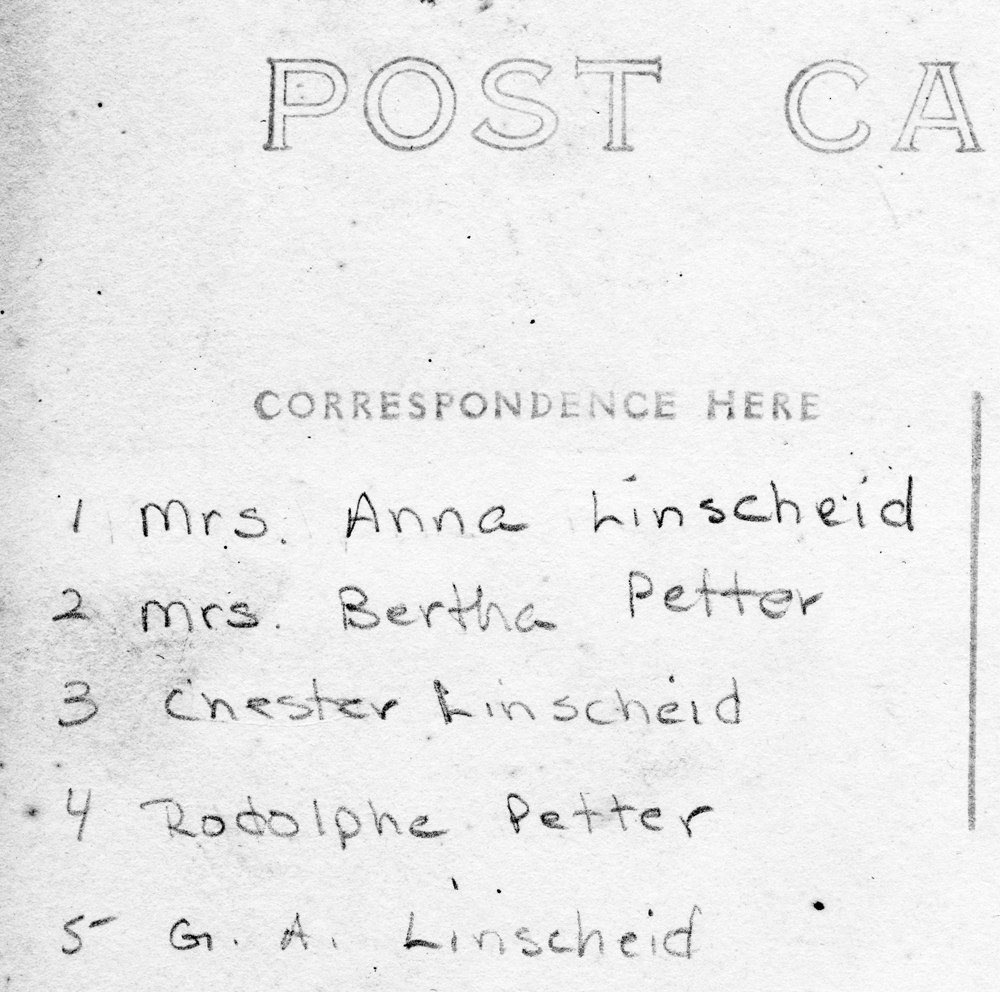 POST CA
CORRESPONDENCE HERE
1 Mrs. Anna Linscheid
2 Mrs. Bertha Petter
3 Chester Linscheid
4 Rodolphe Petter
5 G. A. Linscheid